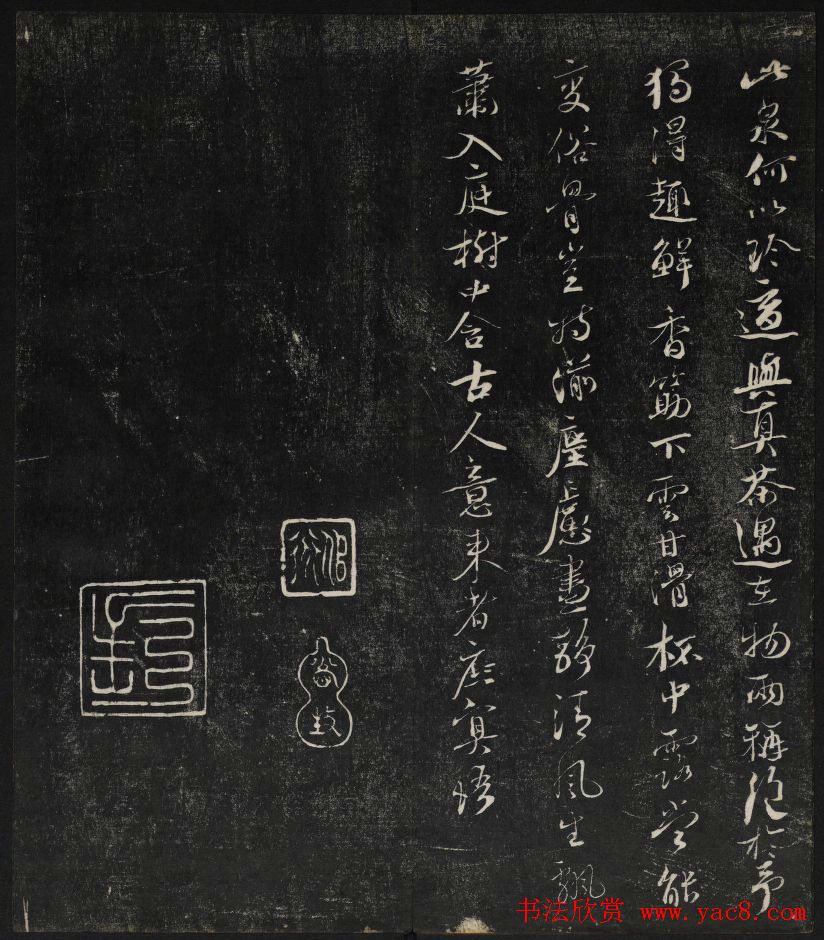 此泉何以珍適與真茶遇在物兩稱絕於予
獨得趣鮮香筯下雲甘滑杯中露當能
變俗骨豈特湔塵慮晝靜清風生飄
蕭入庭樹中含古人意來者庶冥悟
书法欣赏 www.yac8.com